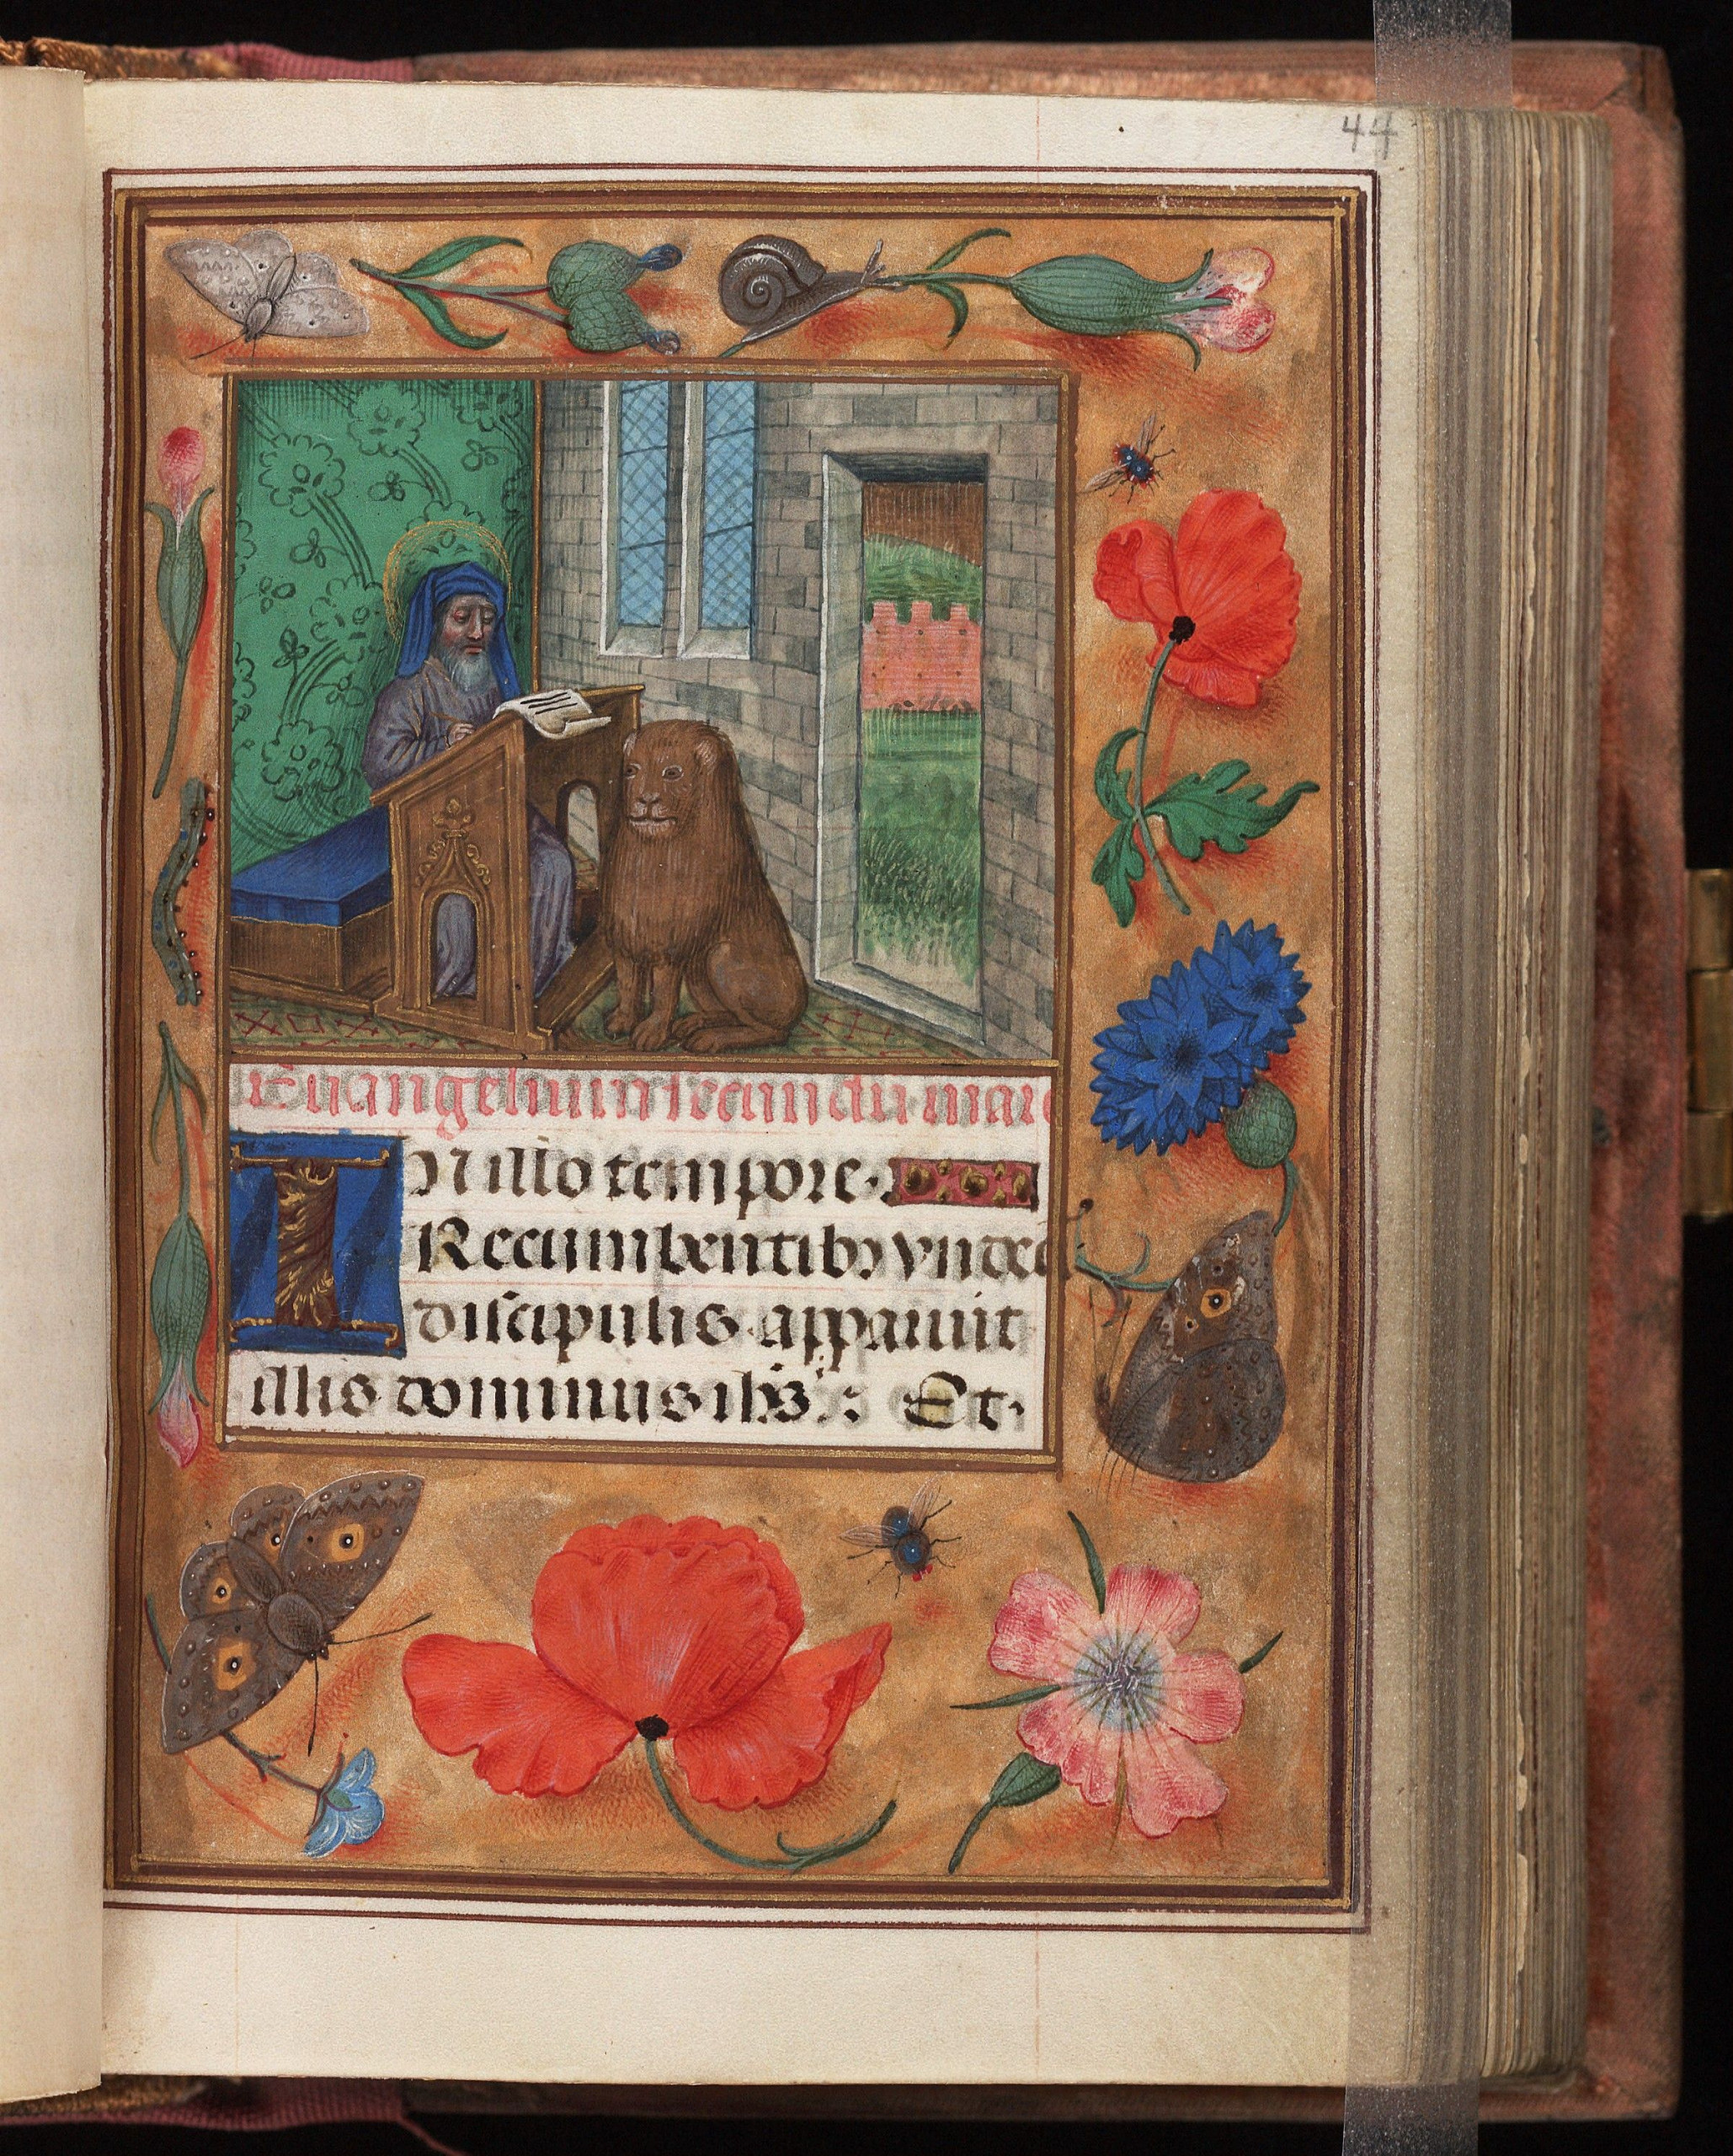 44
Euangelium secundu marc
IN illo tempore.
Recumbentibꝫ vndecī
discipulis apparuit
illis dominus ihs: Et